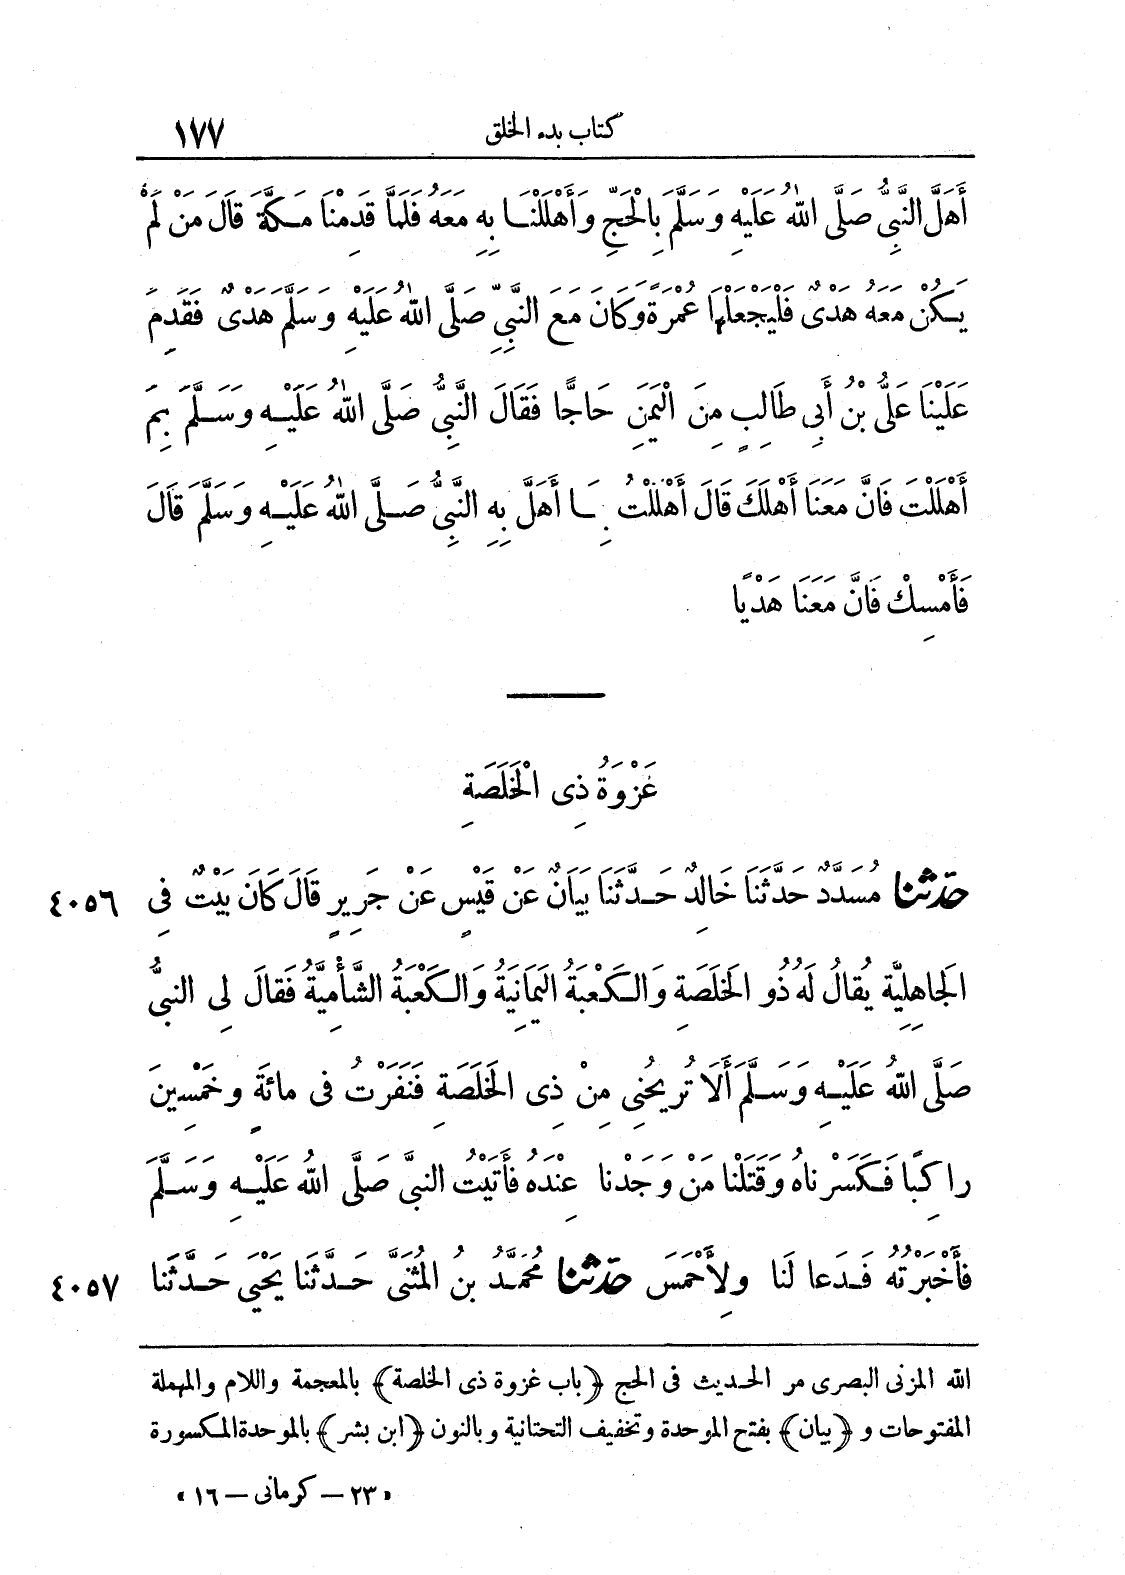 كتاب بدء الخلق ١٧٧
أَهَلَّ النَّبِيُّ صَلَّى اللهُ عَلَيْهِ وَسَلَّمَ بِالْحَجِّ وَأَهْلَلْنَا بِهِ مَعَهُ فَلَمَّا قَدِمْنَا مَكَّةَ قَالَ مَنْ لَمْ
يَكُنْ مَعَهُ هَدْىٌ فَلْيَجْعَلْهَا عُمْرَةً وَكَانَ مَعَ النَّبِيِّ صَلَّى اللهُ عَلَيْهِ وَسَلَّمَ هَدْىٌ فَقَدِمَ
عَلَيْنَا عَلِيُّ بْنُ أَبِي طَالِبٍ مِنَ الْيَمَنِ حَاجًّا فَقَالَ النَّبِيُّ صَلَّى اللهُ عَلَيْهِ وَسَلَّمَ بِمَ
أَهْلَلْتَ فَانَّ مَعَنَا أَهْلَكَ قَالَ أَهْلَلْتُ بِمَا أَهَلَّ بِهِ النَّبِيُّ صَلَّى اللهُ عَلَيْهِ وَسَلَّمَ قَالَ
فَأَمْسِكْ فَانَّ مَعَنَا هَدْيًا
غَزْوَةُ ذِى الْخَلَصَةِ
حَدَّثَنَا مُسَدَّدٌ حَدَّثَنَا خَالِدٌ حَدَّثَنَا بَيَانٌ عَنْ قَيْسٍ عَنْ جَرِيرٍ قَالَ كَانَ بَيْتٌ فِى ٤٠٥٦
الْجَاهِلِيَّةِ يُقَالُ لَهُ ذُو الْخَلَصَةِ وَالْكَعْبَةُ الْيَمَانِيَةُ وَالْكَعْبَةُ الشَّأْمِيَّةُ فَقَالَ لِى النَّبِيُّ
صَلَّى اللهُ عَلَيْهِ وَسَلَّمَ أَلَا تُرِيحُنِى مِنْ ذِى الْخَلَصَةِ فَنَفَرْتُ فِى مِائَةٍ وَخَمْسِينَ
رَاكِبًا فَكَسَرْنَاهُ وَقَتَلْنَا مَنْ وَجَدْنَا عِنْدَهُ فَأَتَيْتُ النَّبِيَّ صَلَّى اللهُ عَلَيْهِ وَسَلَّمَ
فَأَخْبَرْتُهُ فَدَعَا لَنَا وَلِأَحْمَسَ حَدَّثَنَا مُحَمَّدُ بْنُ الْمُثَنَّى حَدَّثَنَا يَحْيَى حَدَّثَنَا ٤٠٥٧
الله المزنى البصرى مر الحديث فى الحج ﴿باب غزوة ذى الخلصة﴾ بالمعجمة واللام والمهملة
المفتوحات و ﴿بيان﴾ بفتح الموحدة وتخفيف التحتانية وبالنون ﴿ابن بشر﴾ بالموحدة المكسورة
«٢٣ – كرمانى – ١٦»